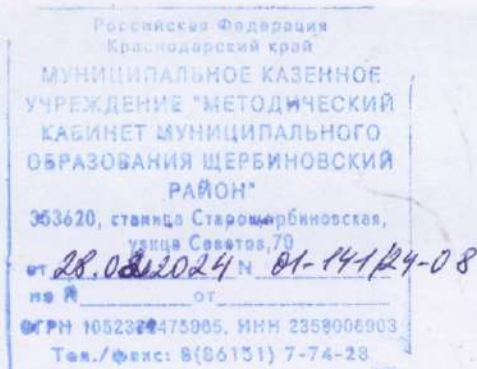 Российская Федерация
Краснодарский край
МУНИЦИПАЛЬНОЕ КАЗЕННОЕ
УЧРЕЖДЕНИЕ "МЕТОДИЧЕСКИЙ
КАБИНЕТ МУНИЦИПАЛЬНОГО
ОБРАЗОВАНИЯ ЩЕРБИНОВСКИЙ
РАЙОН"
353620, станица Старощербиновская,
улица Советов,70
от 2024 N 01-141/24-08
на N от
ОГРН ИНН 2358006903
Тел./факс: 8(86151) 7-74-28